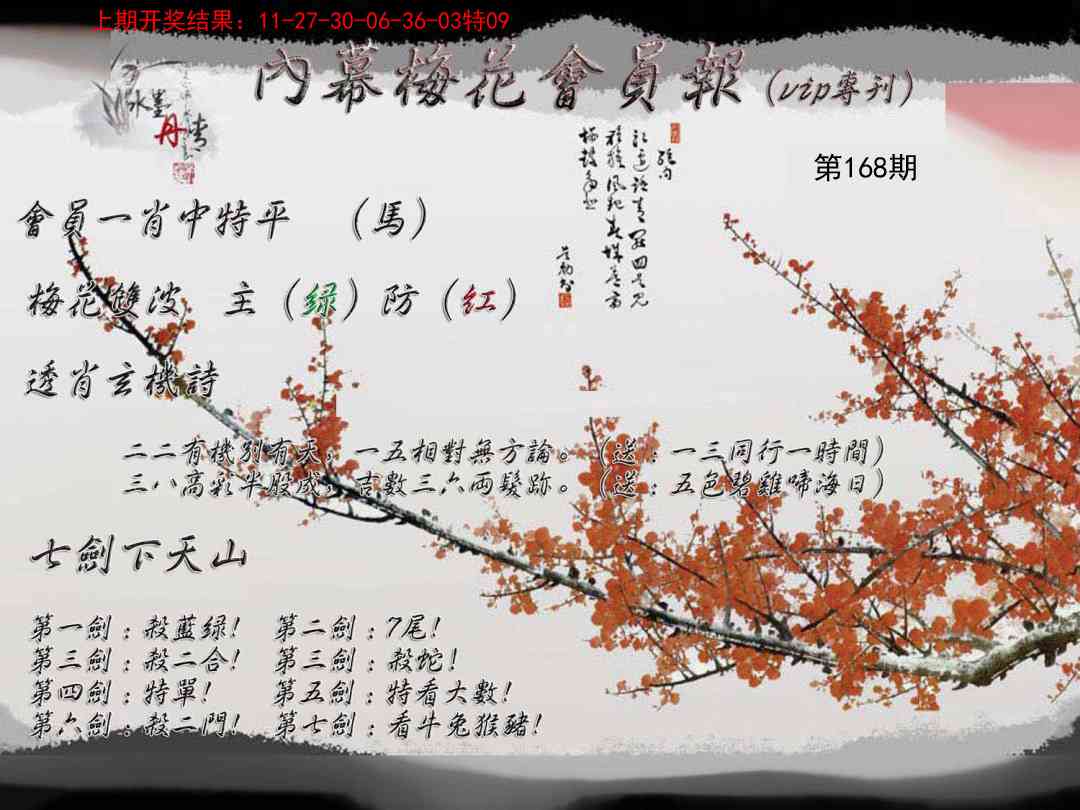 上期开奖结果：11-27-30-06-36-03特09
內幕梅花會員報（vip專刊）
水墨
丹青
第168期
會員一肖中特平　（馬）
梅花雙波　主（绿）防（红）
透肖玄機詩
二二有機別有天，一五相對無方論。（送：一三同行一時間）
三八高彩半股成，吉數三六両髮跡。（送：五色碧雞啼海日）
七劍下天山
第一劍：殺藍绿！　第二劍：7尾！
第三劍：殺二合！　第三劍：殺蛇！
第四劍：特單！　第五劍：特看大數！
第六劍：殺二門！　第七劍：看牛兔猴豬！